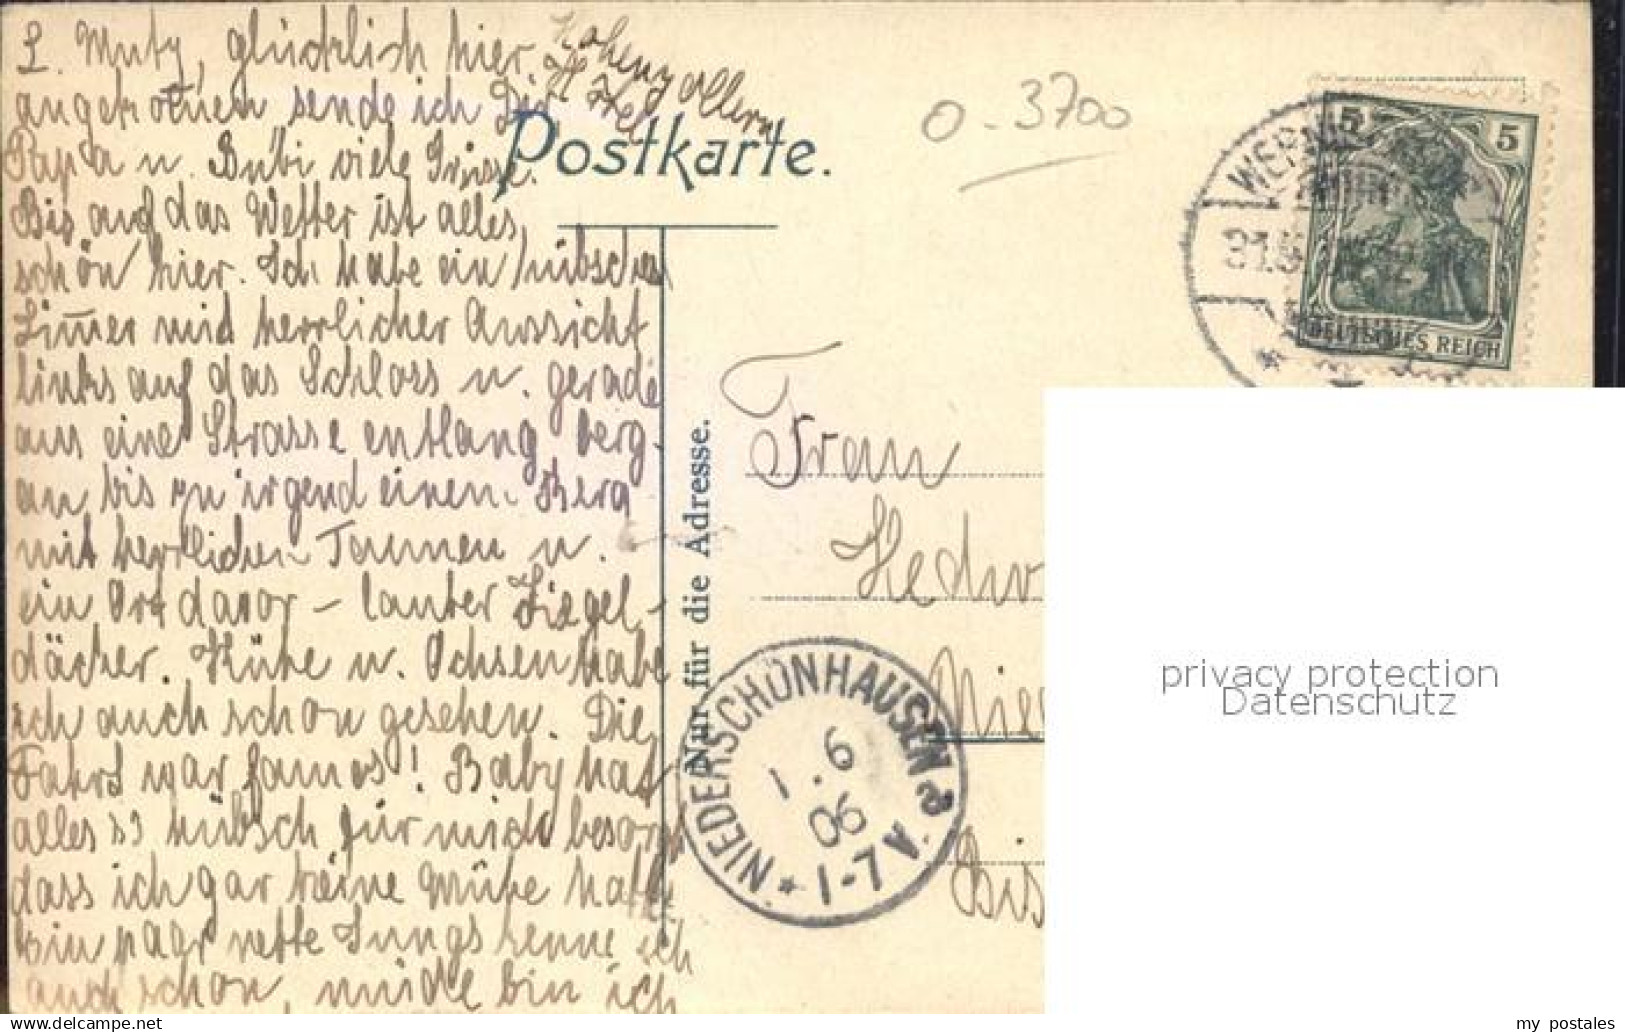 L. Muty, glücklich hier
angekommen sende ich Dir
Papa u. Bubi viele Grüsse.
Bis auf das Wetter ist alles
schön hier. Ich habe ein hübsches
Zimmer mit herrlicher Aussicht
links auf das Schloss u. gerade
aus eine Strasse entlang berg-
an bis zu irgend einem Berg
mit herrlichen Tannen u.
ein Ort davor - lauter Ziegel-
dächer. Kühe u. Ochsen habe
ich auch schon gesehen. Die
Fahrt war famos! Baby hat
alles so hübsch für mich besorgt
dass ich gar keine Mühe hatte
Ein paar nette Jungs kenne ich
auch schon, müde bin ich
Hohenzollern
Hotel
Postkarte.
0 - 3700
5 5
DEUTSCHES REICH
WERNI
31.5
Nur für die Adresse.
Frau
Hedw
Nie
Bis
NIEDERSCHÖNHAUSEN
1.6
06
1-7 V.
privacy protection
Datenschutz
www.delcampe.net
my_postales